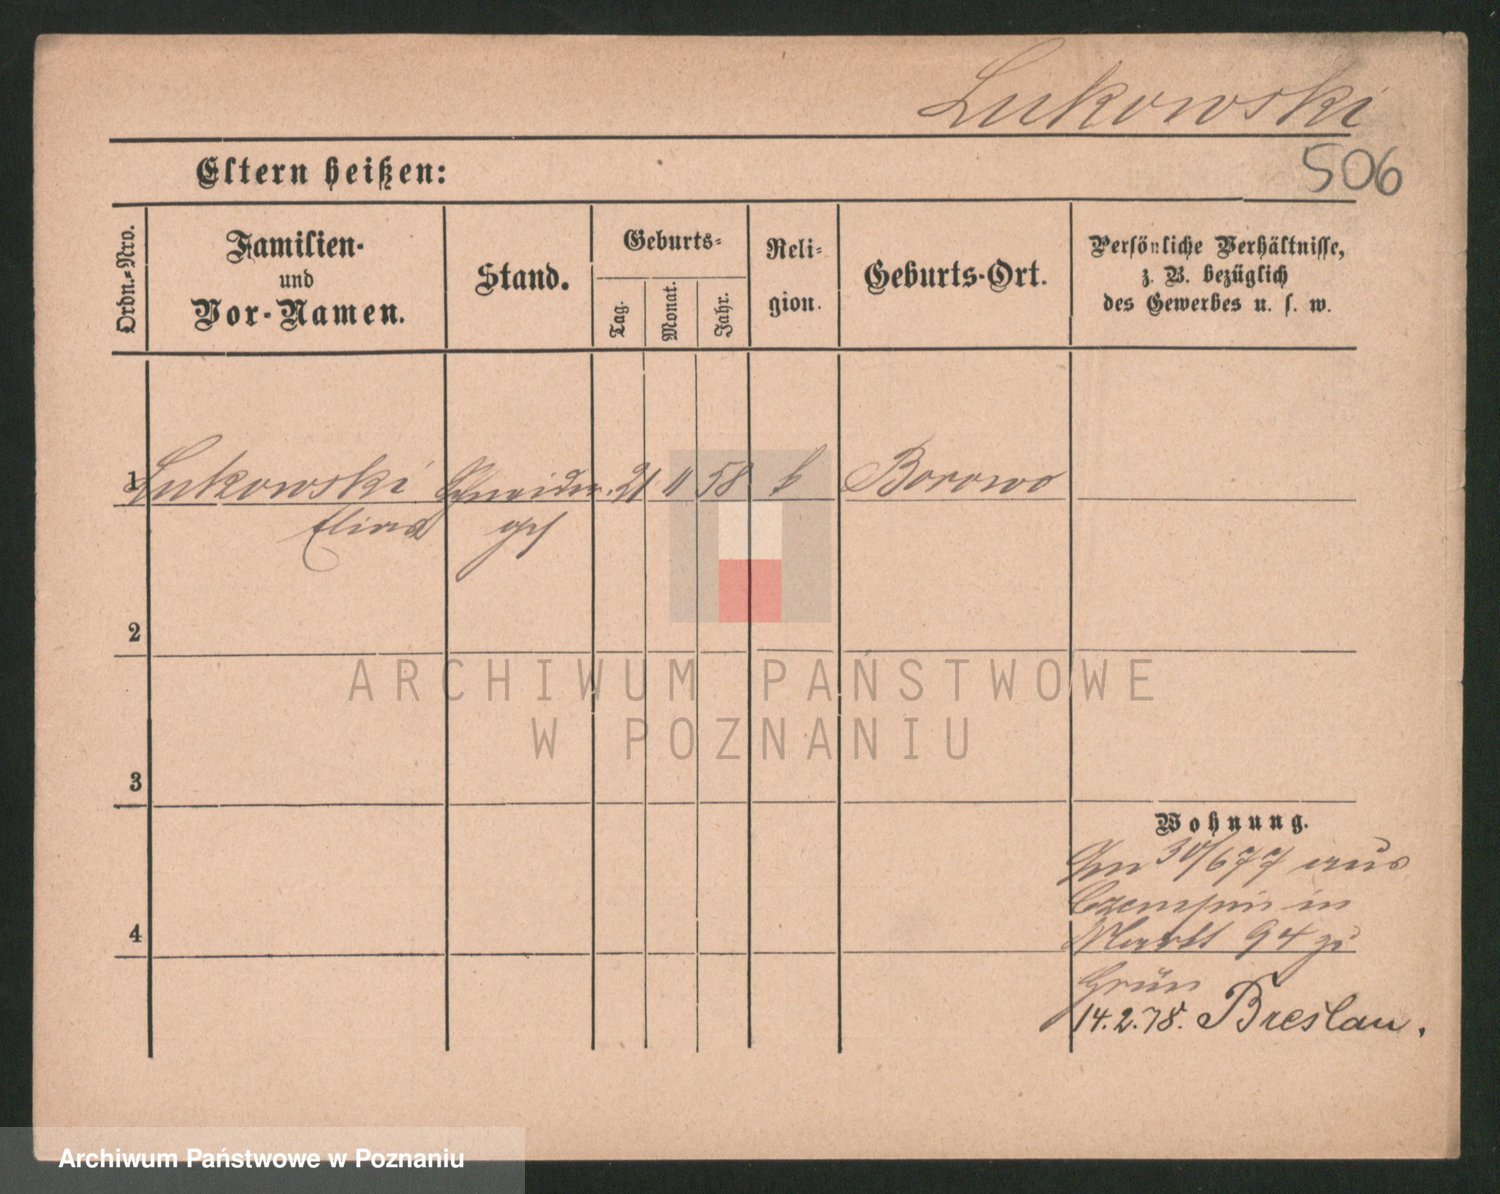 Lukowski
506
Eltern heißen:
Ordn.-Nro.
Familien-
und
Vor-Namen.
Stand.
Geburts-
Tag.
Monat.
Jahr.
Reli-
gion.
Geburts-Ort.
Persönliche Verhältnisse,
z. B. bezüglich
des Gewerbes u. s. w.
1 Lukowski Schneider- 21 11 58 k Borowo
ges
2
ARCHIWUM PAŃSTWOWE
W POZNANIU
3
Wohnung.
30/6 77 aus
Czempin in
Markt 94 zu
Grün
14.2.78. Breslau.
4
Archiwum Państwowe w Poznaniu